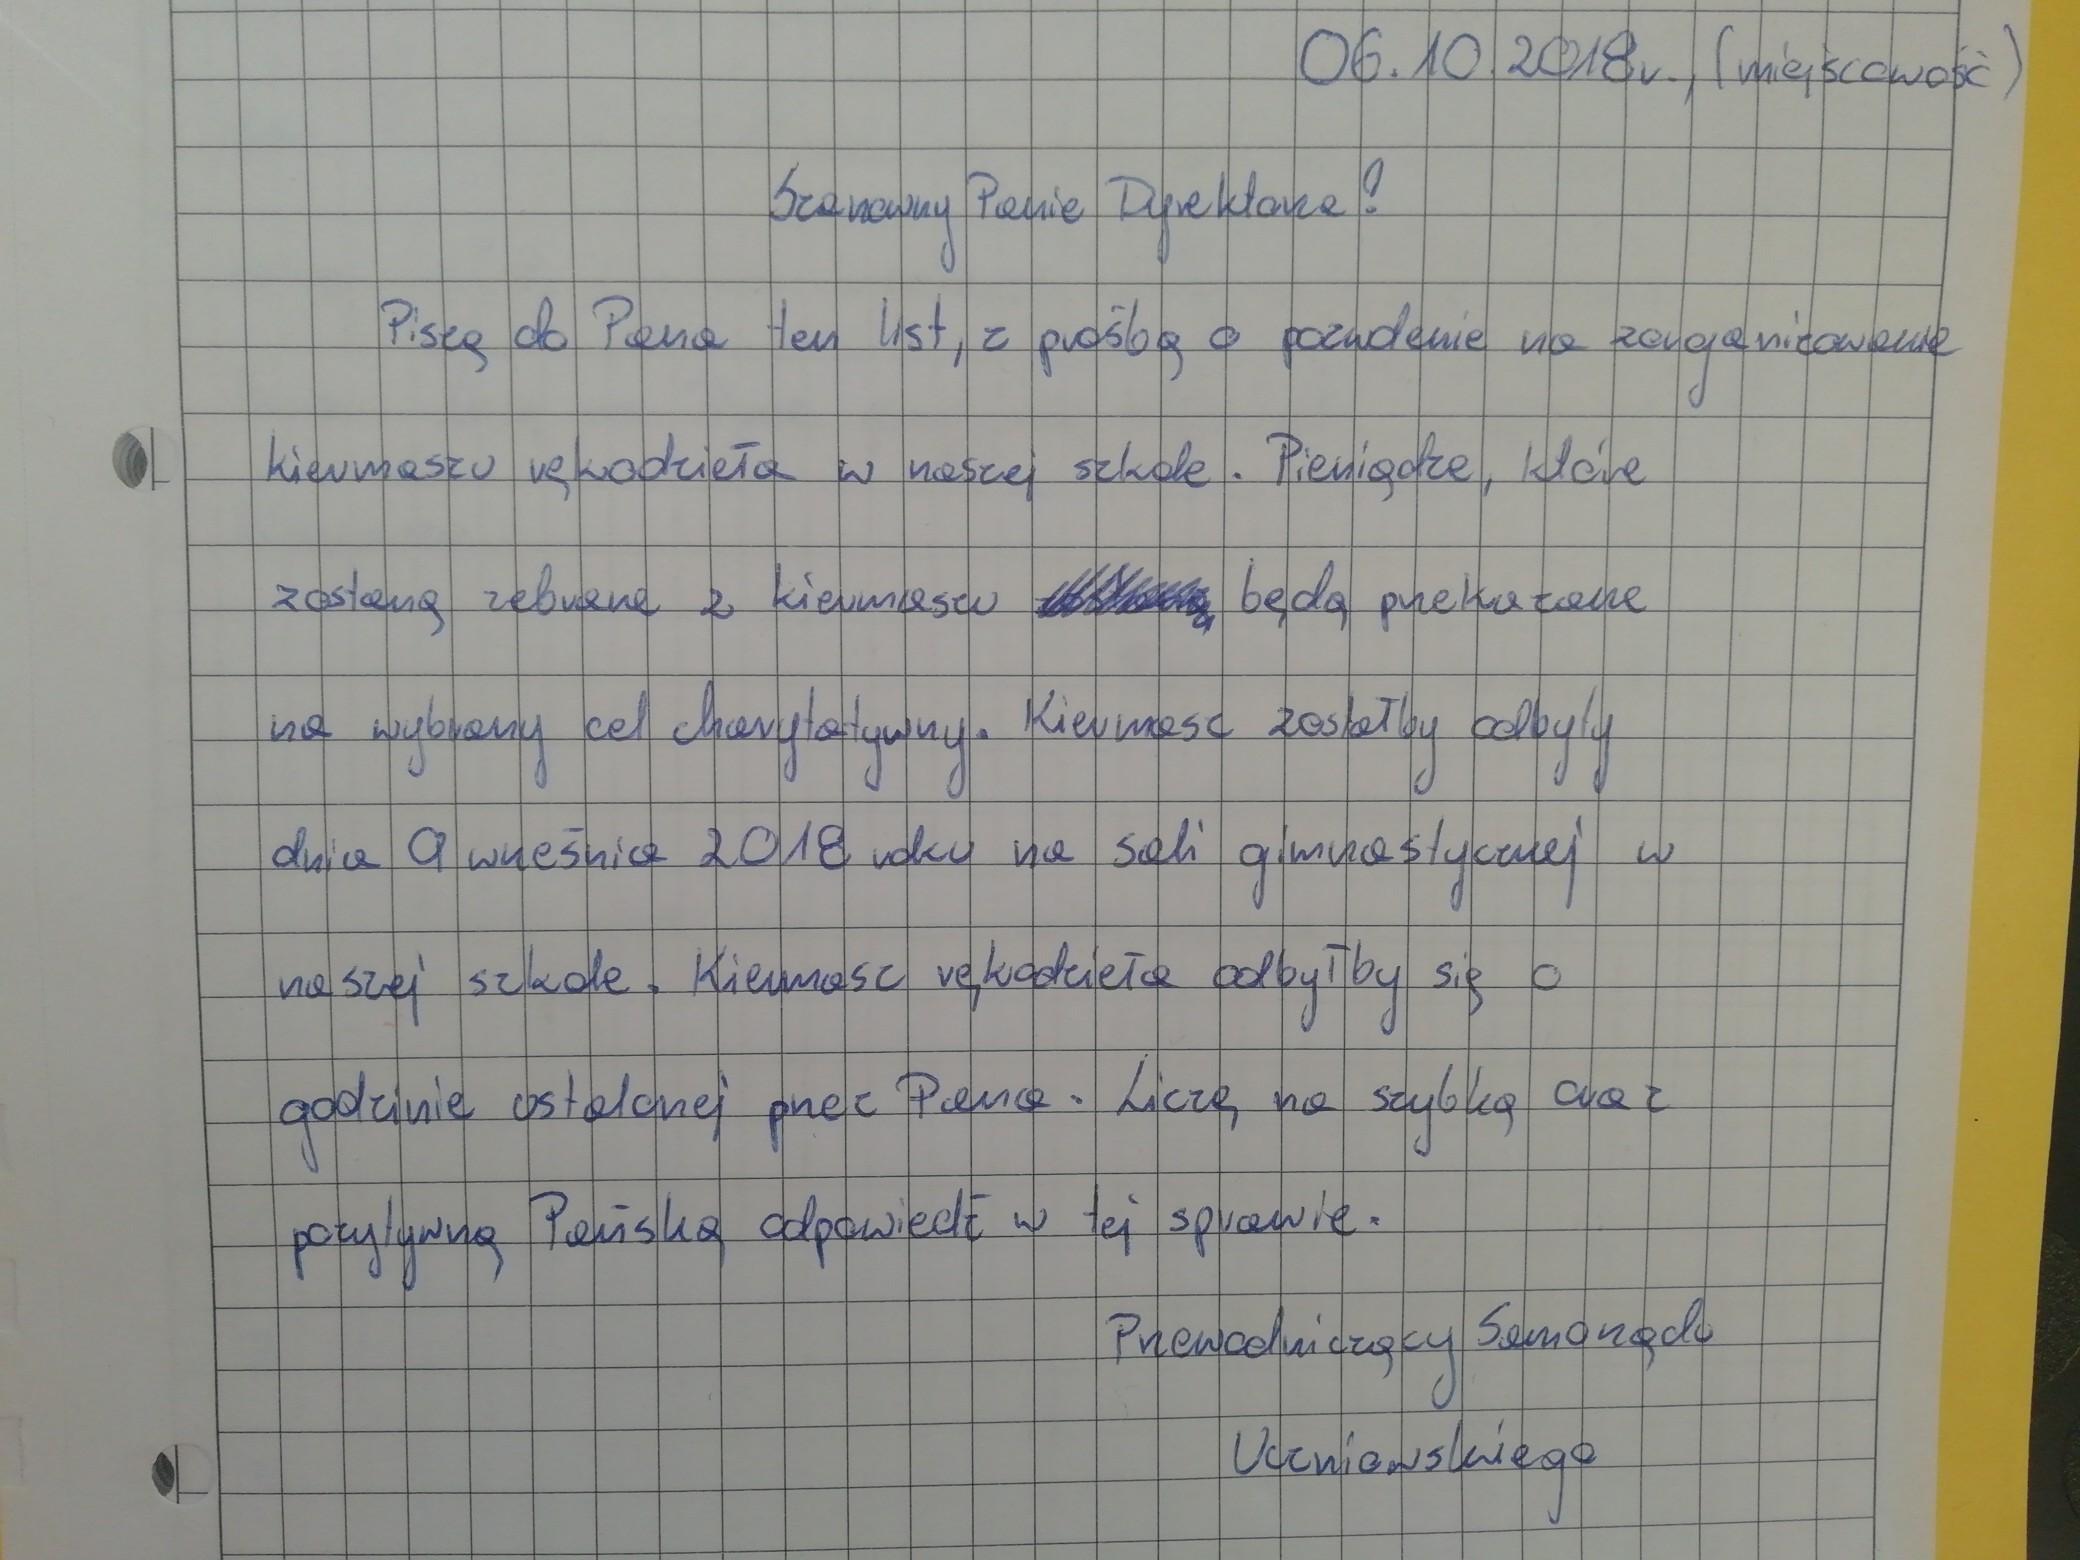 06.10.2018r., (miejscowość)
Szanowny Panie Dyrektorze!
Piszę do Pana ten list, z prośbą o pozwolenie na zorganizowanie
kiermaszu rękodzieła w naszej szkole. Pieniądze, które
zostaną zebrane z kiermaszu będą przekazane
na wybrany cel charytatywny. Kiermasz zostałby odbyty
dnia 9 września 2018 roku na sali gimnastycznej w
naszej szkole. Kiermasz rękodzieła odbyłby się o
godzinie ustalonej przez Pana. Liczę na szybką oraz
pozytywną Pańską odpowiedź w tej sprawie.
Przewodniczący Samorządu
Uczniowskiego